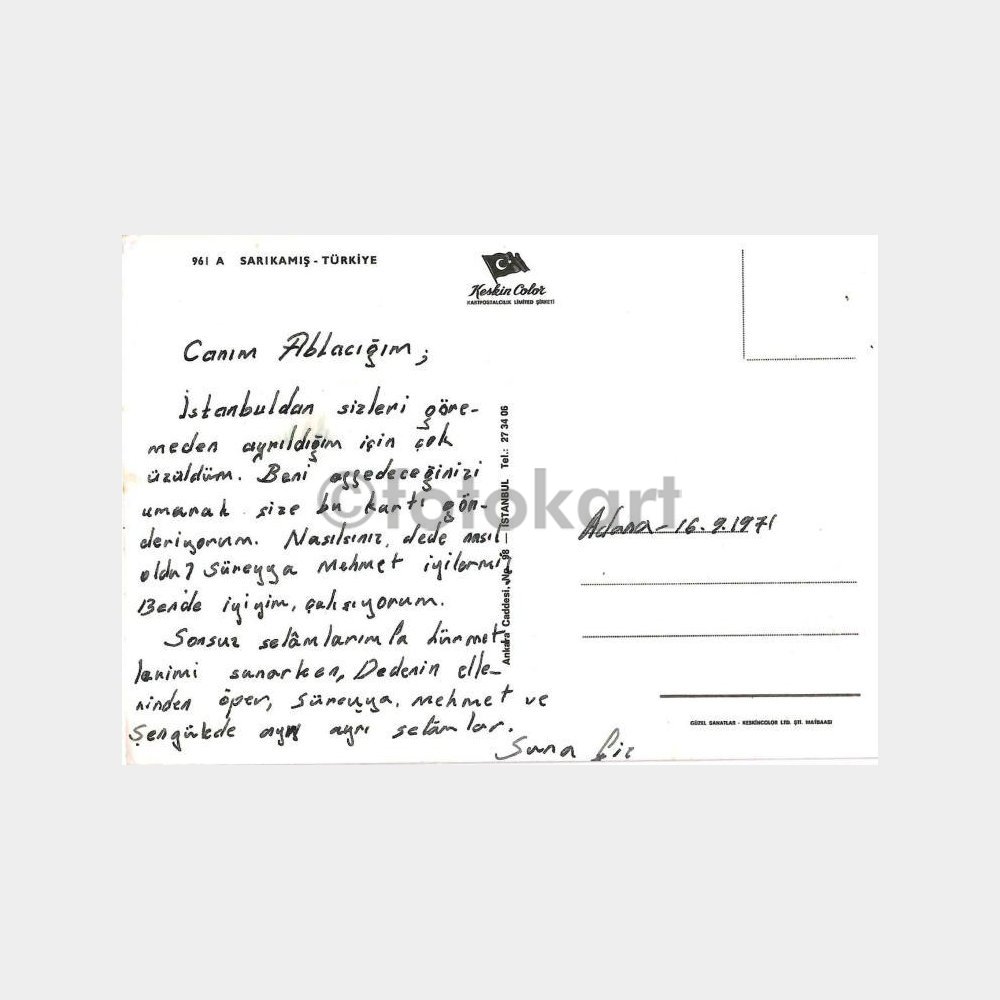 961 A SARIKAMIŞ - TÜRKİYE
Keskin Color
KARTPOSTALCILIK LİMİTED ŞİRKETİ
Canım Ablacığım;
İstanbuldan sizleri göre-
meden ayrıldığım için çok
üzüldüm. Beni affedeceğinizi
umarak size bu kartı gön-
deriyorum. Nasılsınız, dede nasıl
oldu? Süreyya Mehmet iyilermi
Bende iyiyim, çalışıyorum.
Sonsuz selâmlarımla hürmet
lerimi sunarken, Dedenin elle-
rinden öper, Süreyya, Mehmet ve
Şengülede ayrı ayrı selâmlar.
Suna
Ankara Caddesi, No. 98 — İSTANBUL Tel.: 27 34 06
Adana - 16.9.1971
GÜZEL SANATLAR - KESKİNCOLOR LTD. ŞTİ. MATBAASI
©fotokart